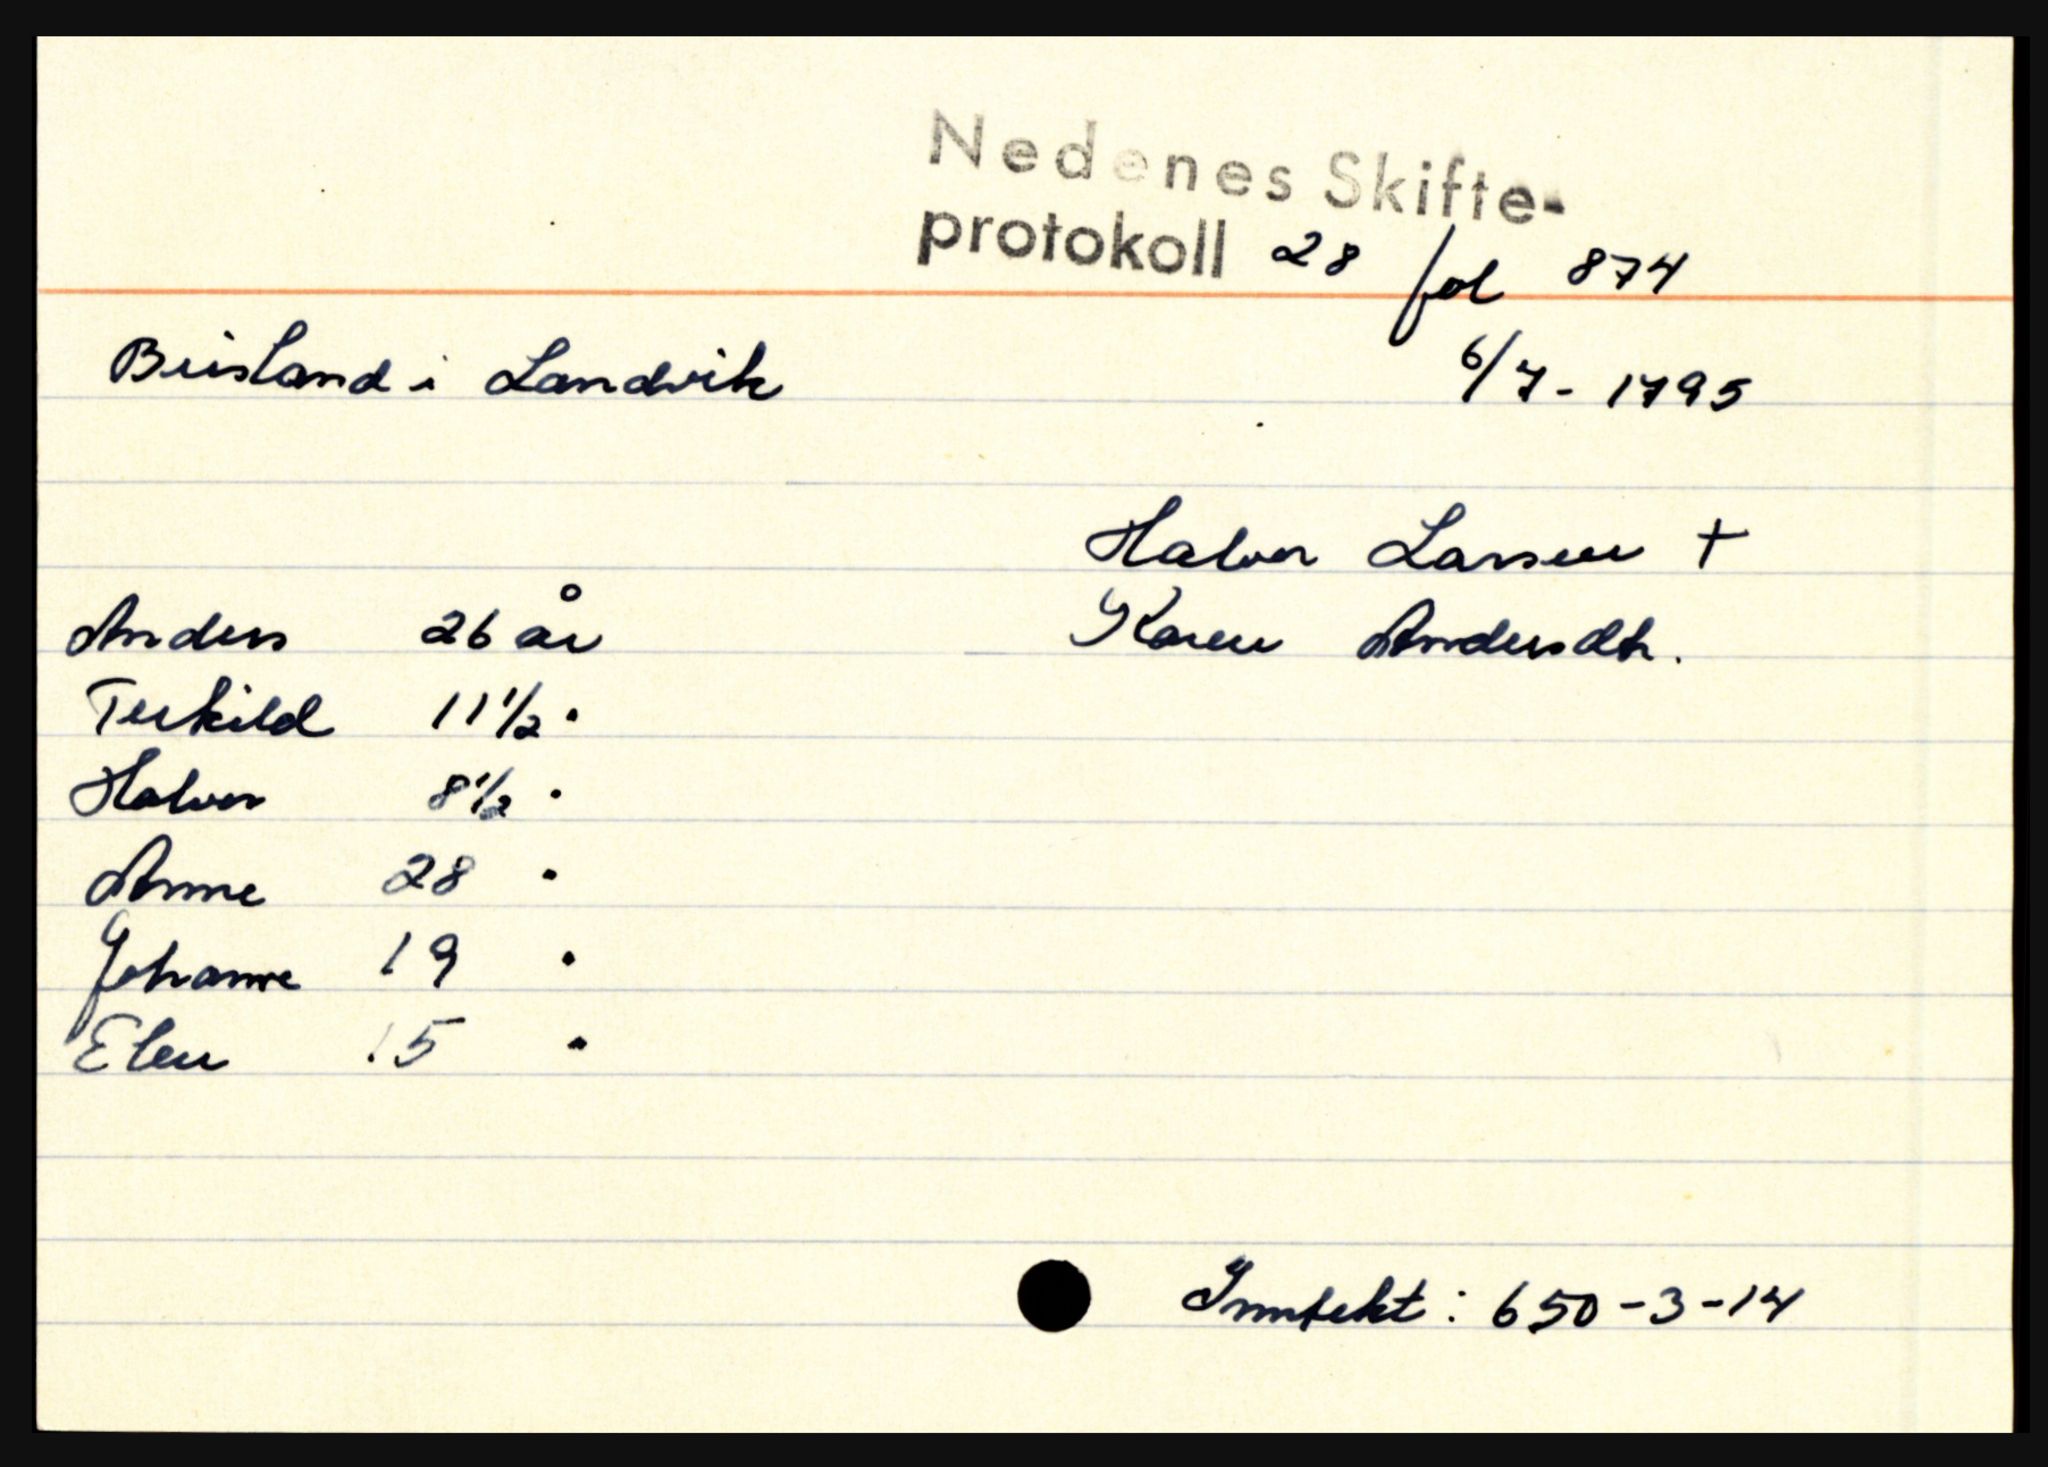 Nedenes Skifte-
protokoll 28 fol 874
Beisland i Landvik
6/7 - 1795
Halvor Larsen +
Karen Andersdtr.
Anders 26 år
Terkild 11 1/2 "
Halvor 8 1/2 "
Anne 28 "
Johanne 19 "
Elen 15 "
Inntekt: 650-3-14